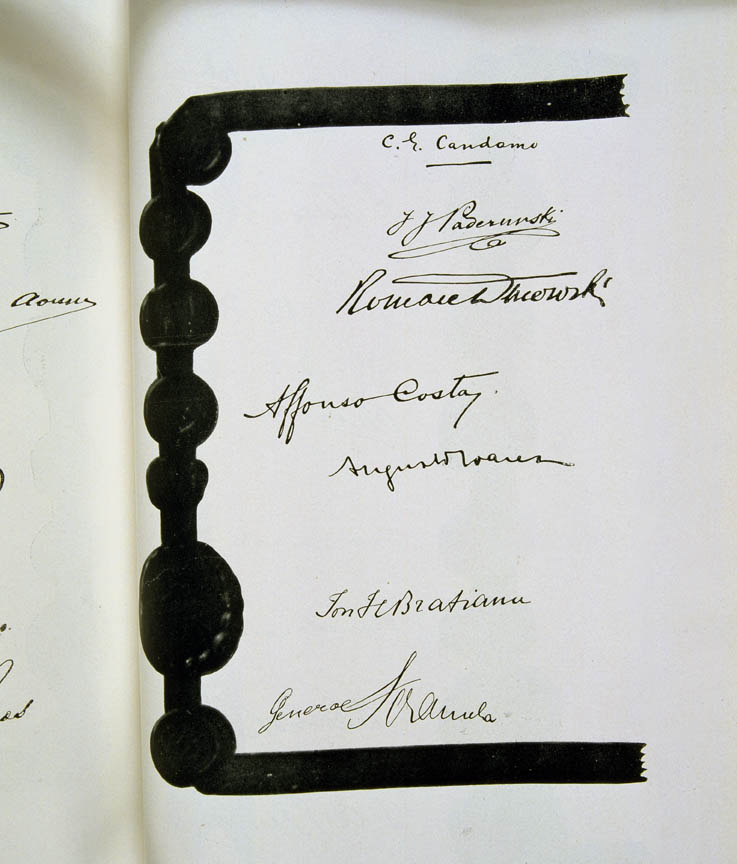 C. G. Candamo
I J Paderewski
Roman Dmowski
Affonso Costa
Augusto Soares
Ion I C Bratianu
General